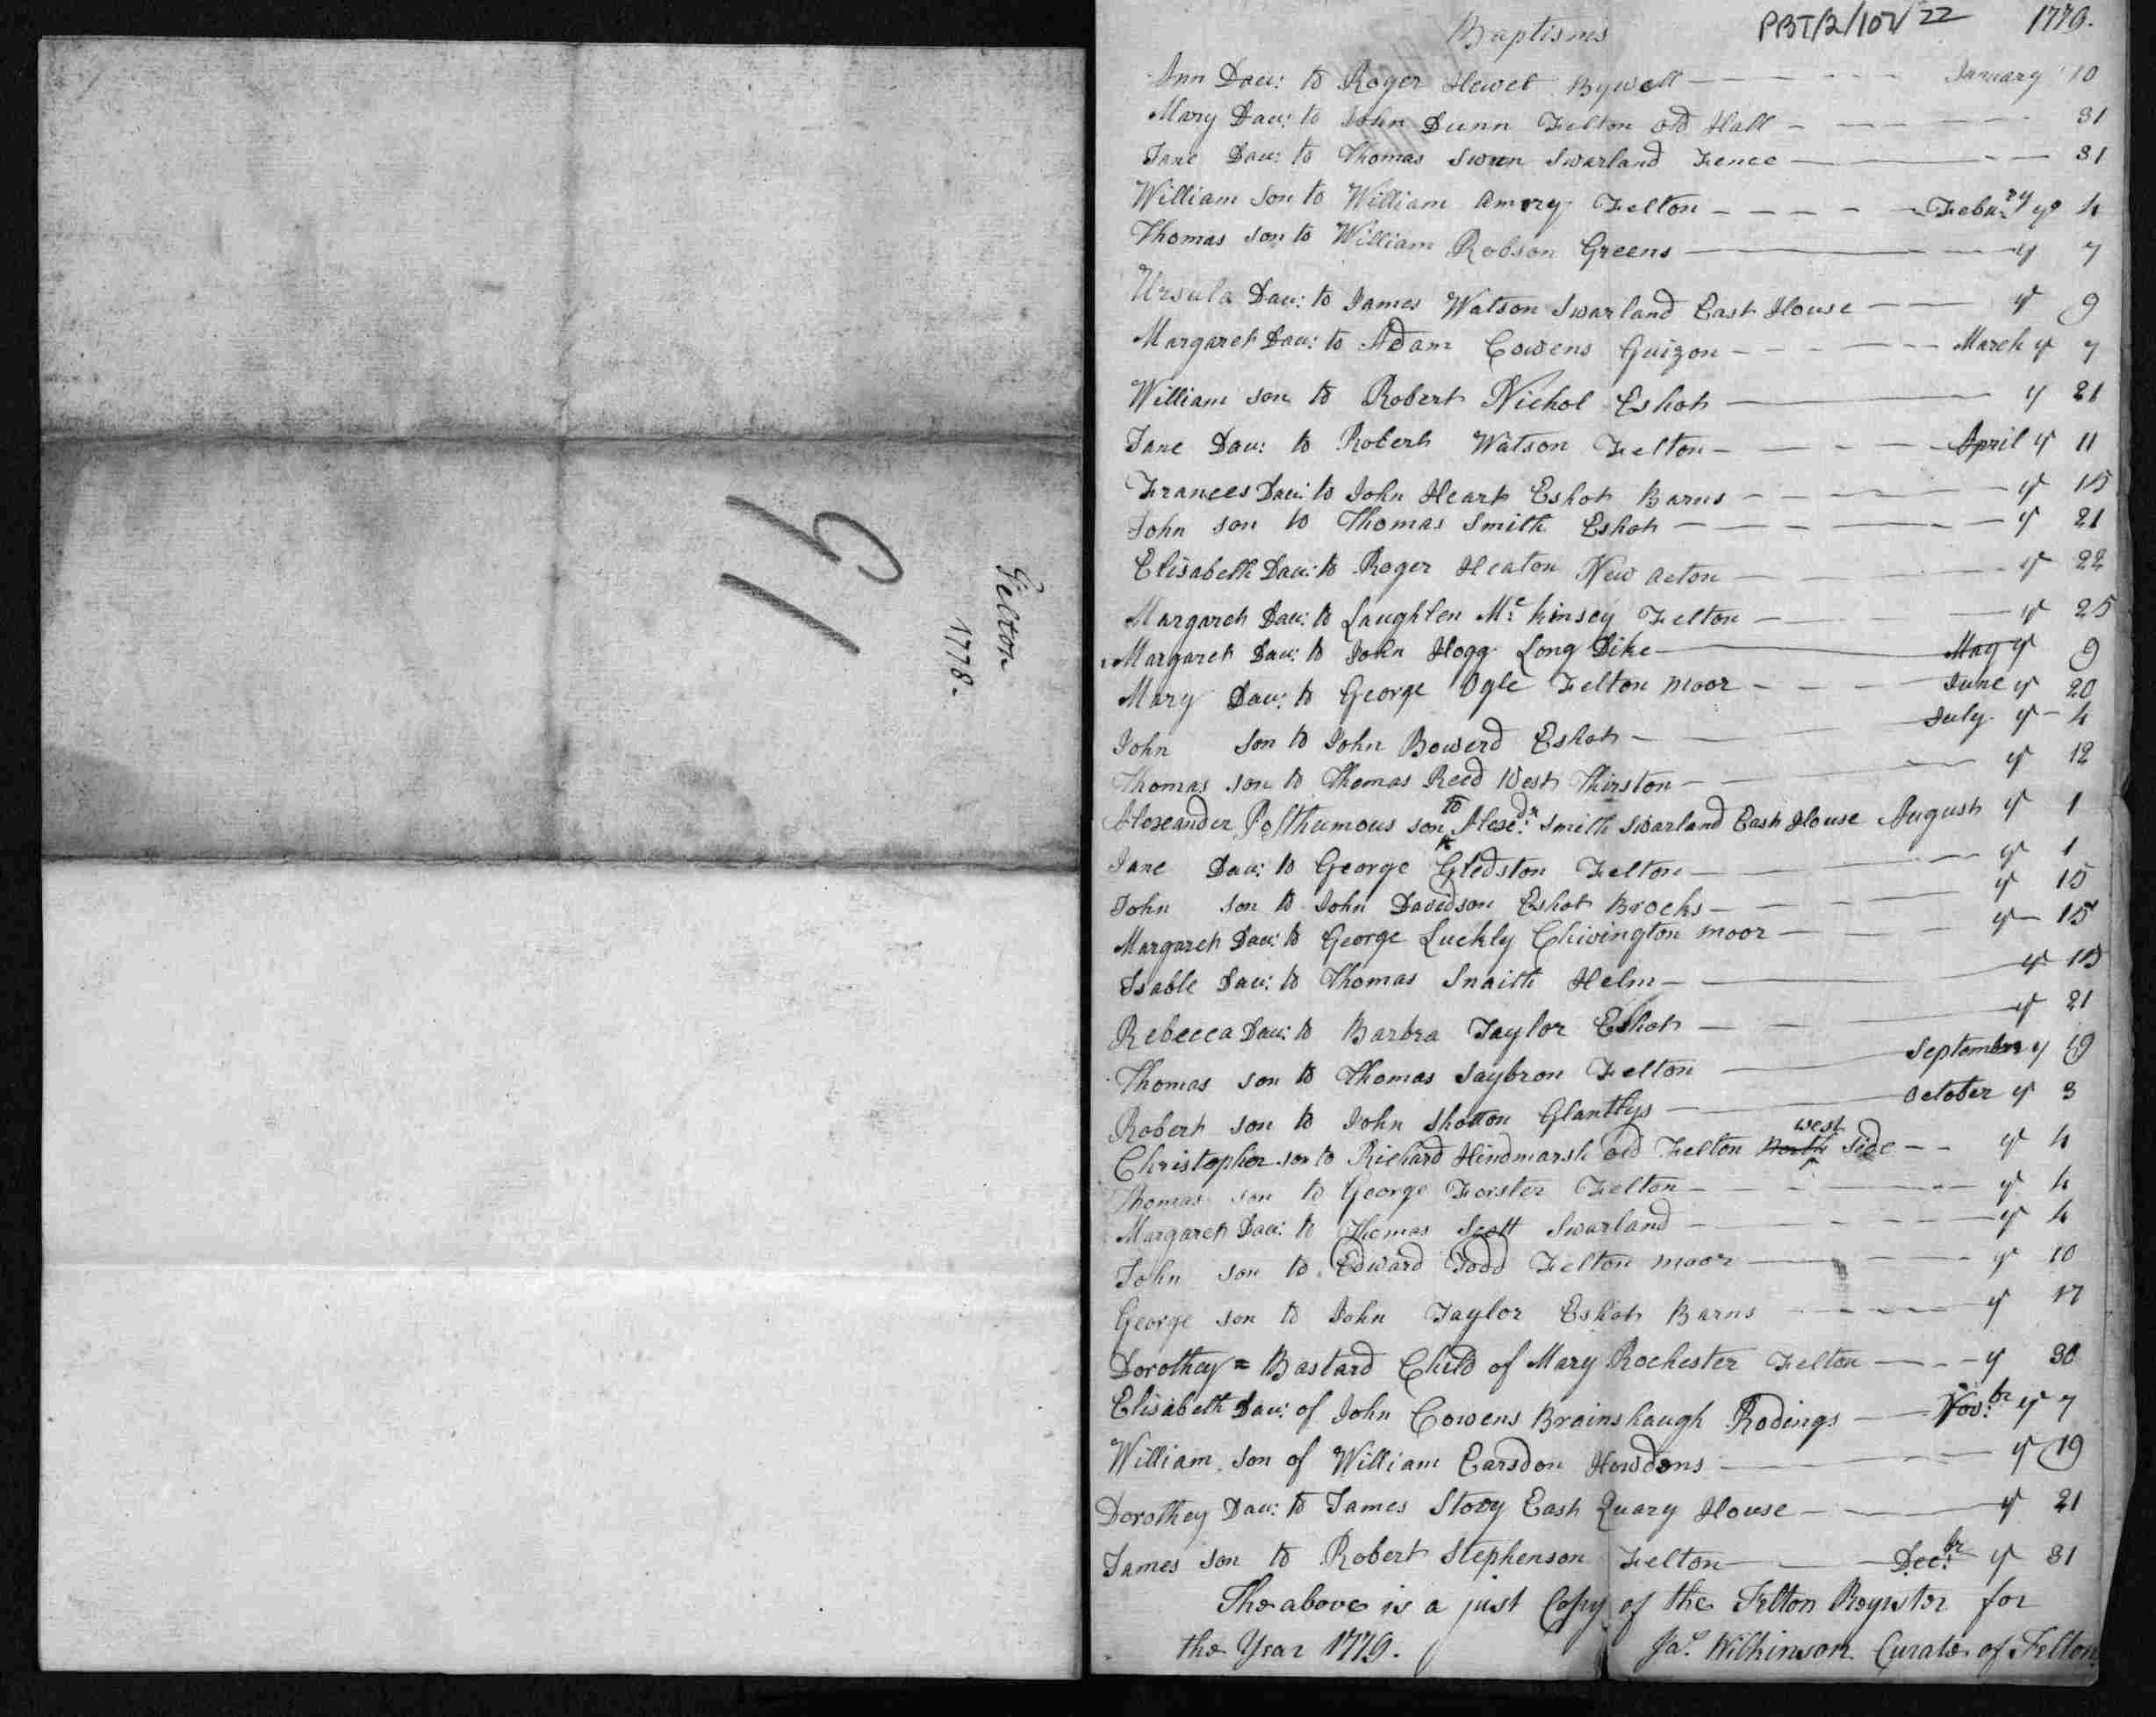 Felton
1778-
19
Baptisms PBT/2/101/22 1779.
Ann Dau: to Roger Hewet Bywell January 10
Mary Dau: to John Dunn Felton Old Hall 31
Jane Dau: to Thomas Swan Swarland Fence 31
William Son to William Amory Felton Febu:ry ye 4
Thomas son to William Robson Greens ye 7
Ursula Dau: to James Watson Swarland East House ye 9
Margaret Dau: to Adam Cowens Guizon March ye 7
William son to Robert Nichol Eshot ye 21
Jane Dau: to Robert Watson Felton April ye 11
Frances Dau: to John Heart Eshot Barns ye 15
John son to Thomas Smith Eshot ye 21
Elisabeth Dau: to Roger Heaton New Acton ye 22
Margaret Dau: to Laughlen Mc:kinsey Felton ye 25
Margaret Dau: to John Hogg Long Dike May ye 9
Mary Dau: to George Ogle Felton moor June ye 20
John son to John Bowerd Eshot July ye 4
Thomas son to Thomas Reed West Thirston ye 12
Alexander Posthumous son to Alexd:r Smith Swarland East House August ye 1
Jane Dau: to George Gledston Felton ye 1
John son to John Davidson Eshot Brocks ye 15
Margaret Dau: to George Luckly Chivington moor ye 15
Isable Dau: to Thomas Snaith Helm ye 15
Rebecca Dau: to Barbra Taylor Eshot ye 21
Thomas son to Thomas Saybron Felton September ye 19
Robert son to John Shotton Glantlys October ye 3
Christopher son to Richard Hindmarsh Old Felton North west Side ye 4
Thomas son to George Forster Felton ye 4
Margaret Dau: to Thomas Scott Swarland ye 4
John son to Edward Todd Felton moor ye 10
George son to John Taylor Eshot Barns ye 17
Dorothey = Bastard Child of Mary Rochester Felton ye 30
Elisabeth Dau: of John Cowens Brainshaugh Rodings Nov:br ye 7
William son of William Earsdon Howdons ye 19
Dorothey Dau: to James Stovy East Quary House ye 21
James son to Robert Stephenson Felton Dec:br ye 31
The above is a just Copy of the Felton Register for
the Year 1779. Jas. Wilkinson Curate of Felton